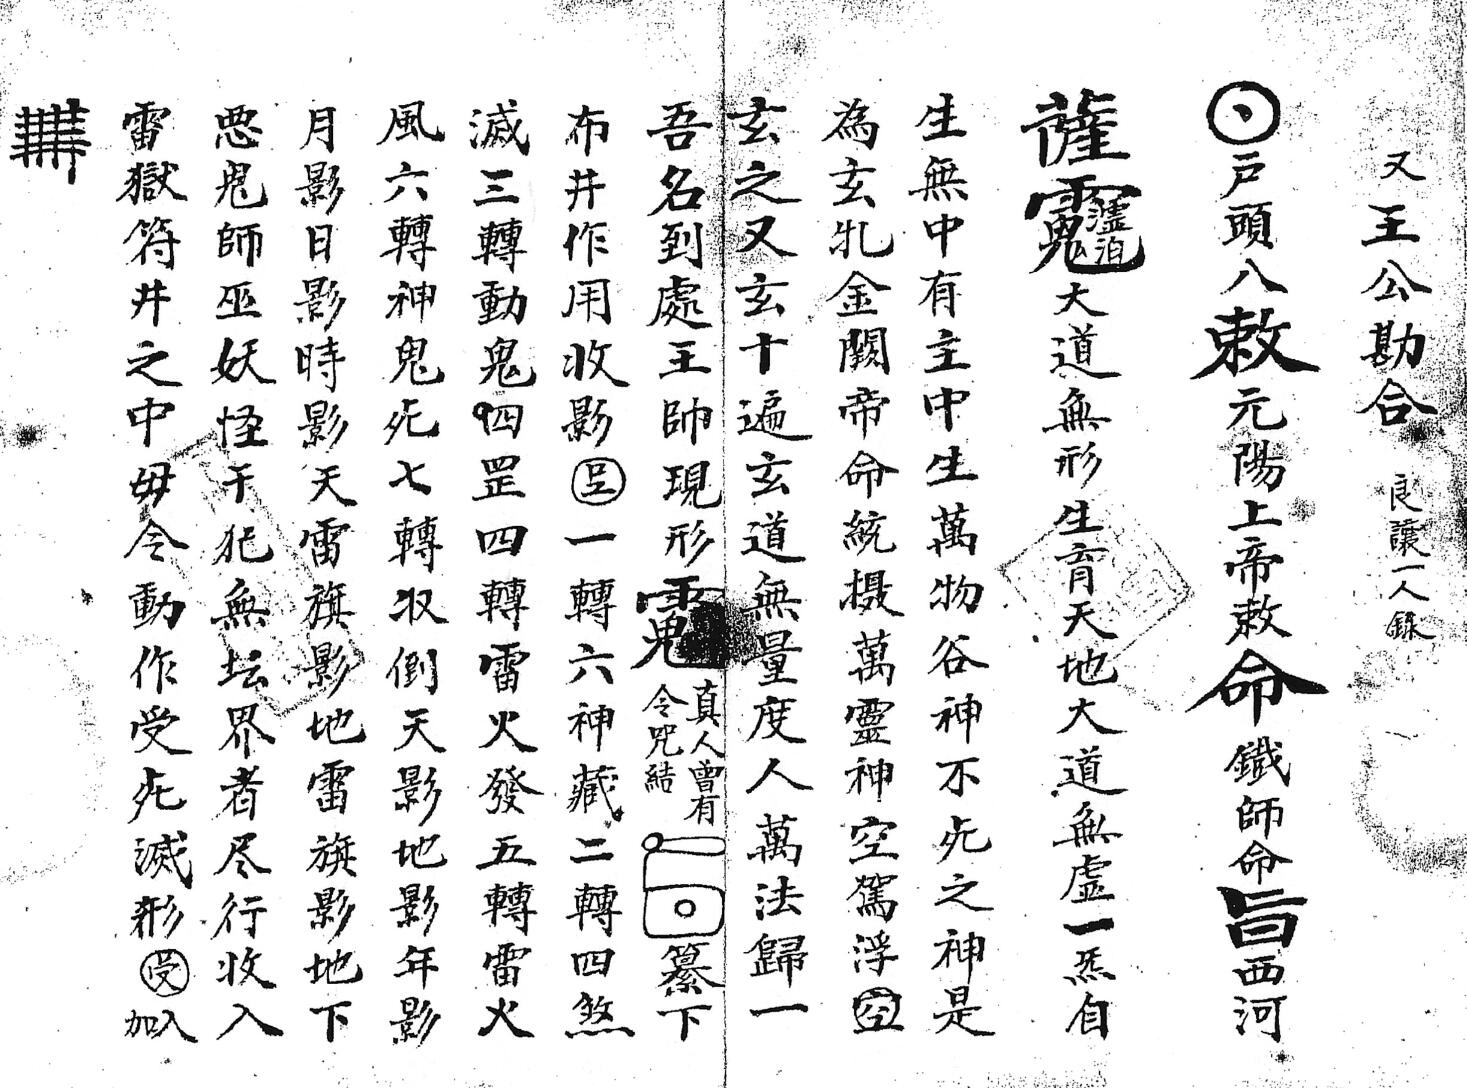 又王公勘合 良讓一人錄
戶頭八敕元陽上帝敕命鐵師命旨西河
薩大道無形生育天地大道無虛一炁自
生無中有主中生萬物谷神不死之神是
為玄牝金闕帝命統摄萬靈神空駕浮空
玄之又玄十遍玄道無量度人萬法歸一
吾名到處王帥現形真人曾有令咒結纂下
布井作用收影一轉六神藏二轉四煞
滅三轉動鬼四罡四轉雷火發五轉雷火
風六轉神鬼死七轉収倒天影地影年影
月影日影時影天雷旗影地雷旗影地下
恶鬼師巫妖怪干犯無坛界者尽行收入
雷獄符井之中毋令動作受死滅形受加入